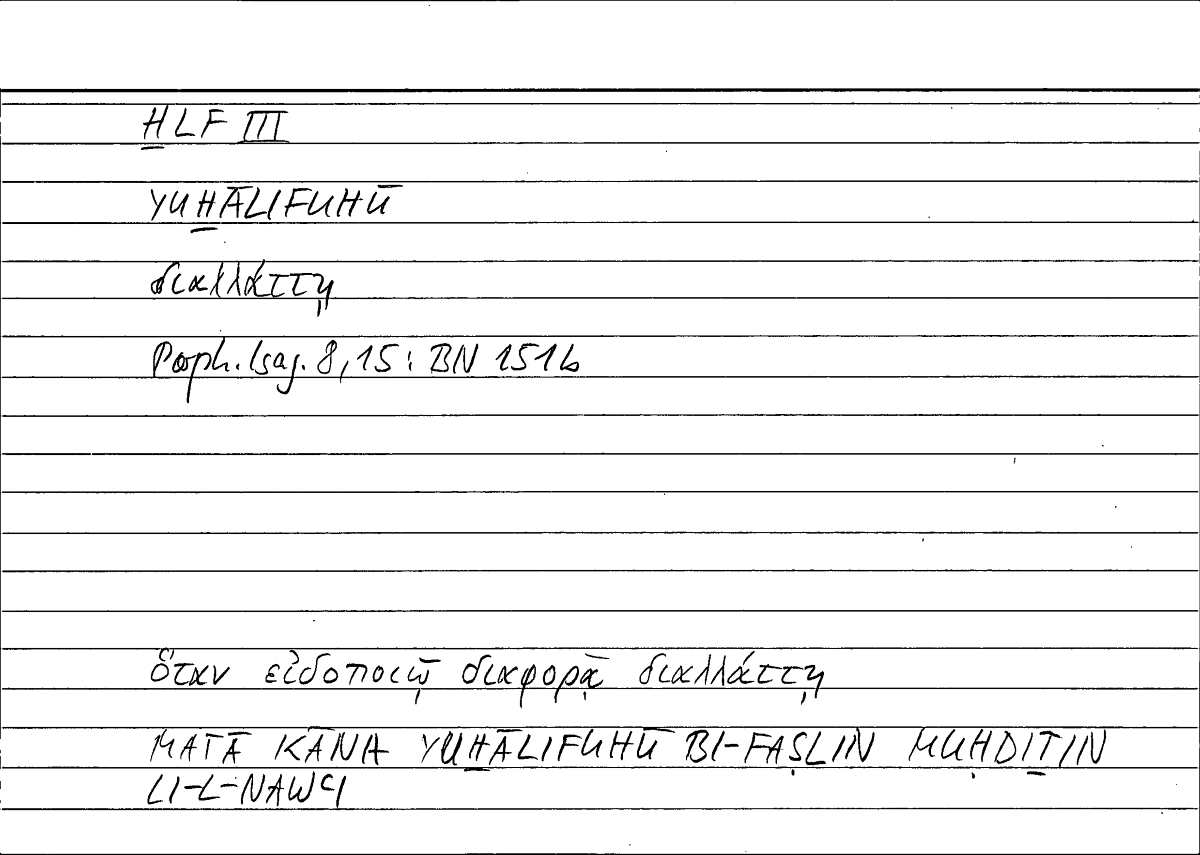 H̱LF III
YUH̱ĀLIFUHŪ
διαλλάττῃ
Porph. Isag. 8,15: BN 151b
ὅταν εἰδοποιῷ διαφορᾷ διαλλάττῃ
MATĀ KĀNA YUH̱ĀLIFUHŪ BI-FAṢLIN MUḤDIṮIN
LI-L-NAWʿI